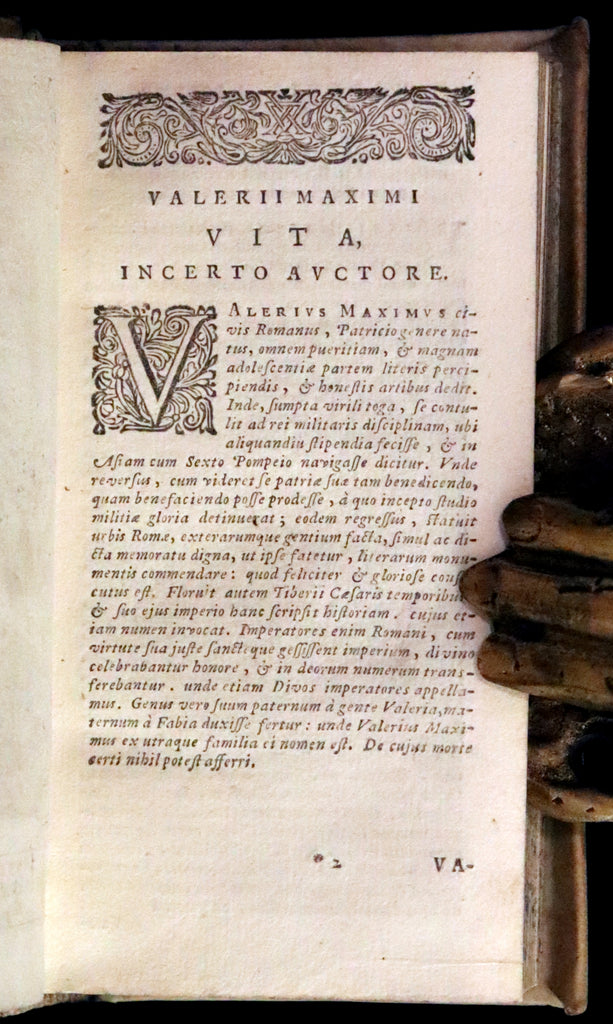 VALERII MAXIMI
VITA,
INCERTO AVCTORE.
VALERIVS MAXIMVS ci-
vis Romanus, Patricio genere na-
tus, omnem pueritiam, & magnam
adolescentiæ partem literis perci-
piendis, & honestis artibus dedit.
Inde, sumpta virili toga, se contu-
lit ad rei militaris disciplinam, ubi
aliquandiu stipendia fecisse, & in
Asiam cum Sexto Pompeio navigasse dicitur. Vnde
reversus, cum videret se patriæ suæ tam benedicendo,
quam benefaciendo posse prodesse, à quo incepto studio
militiæ gloria detinuerat; eodem regressus, statuit
urbis Romæ, exterarumque gentium facta, simul ac di-
cta memoratu digna, ut ipse fatetur, literarum monu-
mentis commendare: quod feliciter & gloriose conse
cutus est. Floruit autem Tiberii Cæsaris temporibu
& suo ejus imperio hanc scripsit historiam. cujus et-
iam numen invocat. Imperatores enim Romani, cum
virtute sua juste sancteque gessissent imperium, divino
celebrabantur honore, & in deorum numerum trans-
ferebantur. unde etiam Divos imperatores appella-
mus. Genus vero suum paternum à gente Valeria, ma-
ternum à Fabia duxisse fertur: unde Valerius Maxi-
mus ex utraque familia ei nomen est. De cujus morte
certi nihil potest afferri.
* 2 VA-